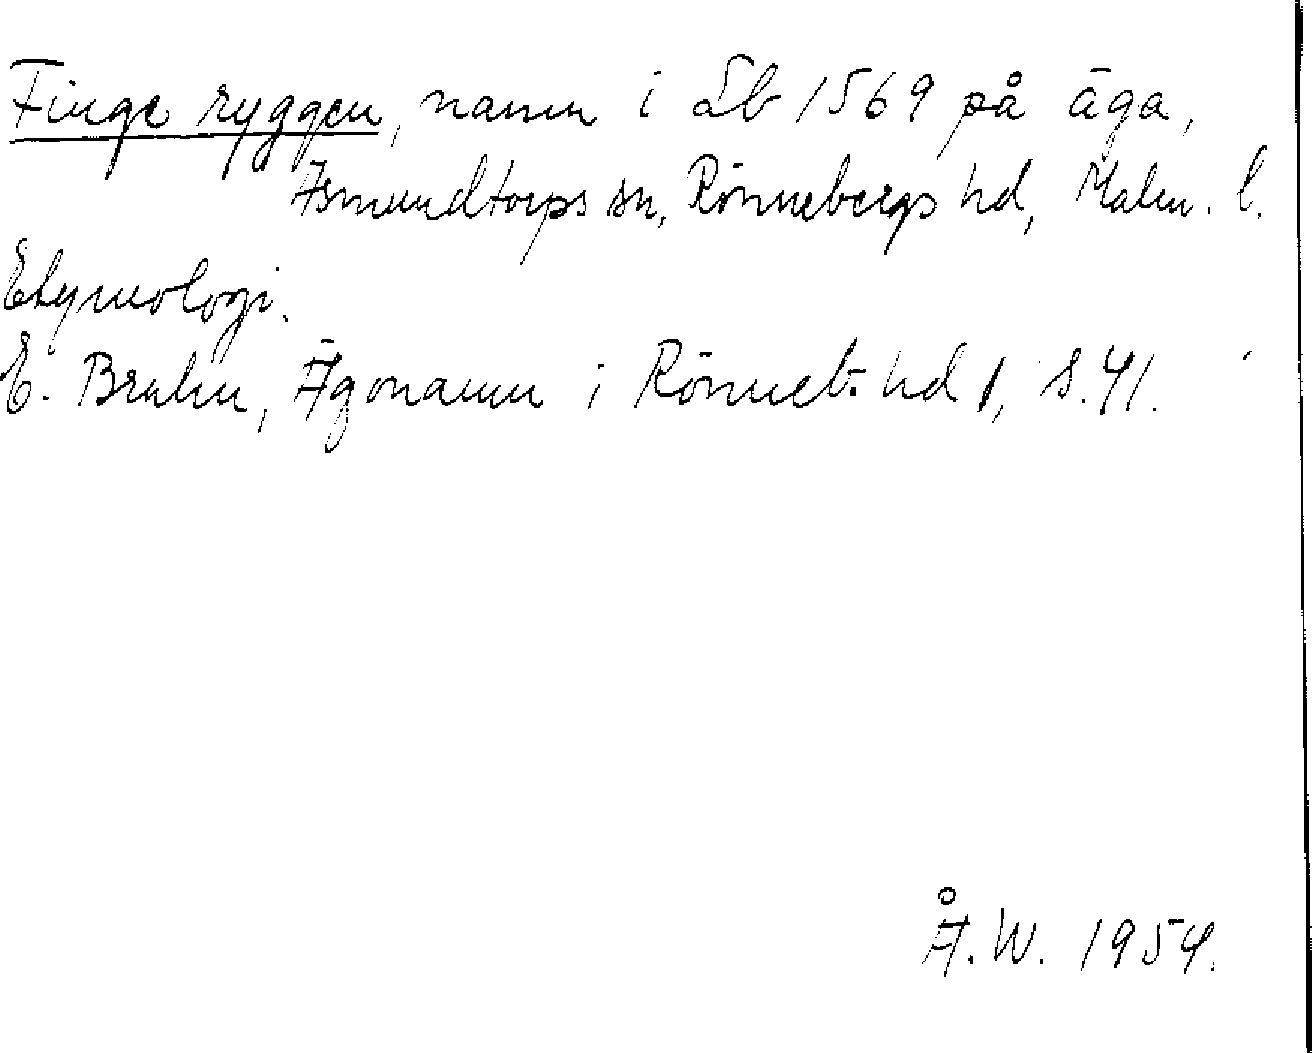 Finge ryggen, namn i Lb 1569 på äga,
Asmundtorps sn, Rönnebergs hd, Malm. l.
Etymologi.
E. Bruhn, Ägonamn i Rönneb. hd 1, s. 41.
Å. W. 1954.